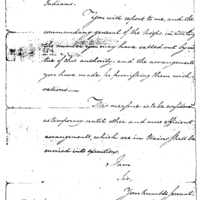 Indians.
You will report to me, and the
commanding general of the troops in
the number you may have called out by
of this authority, and the arrangement
you have made in furnishing them with
rations —
This measure is to be explained
as temporary, until other and more efficient
arrangements, which are in train shall be
carried into operation.
I am
Sir,
Your humble servant.